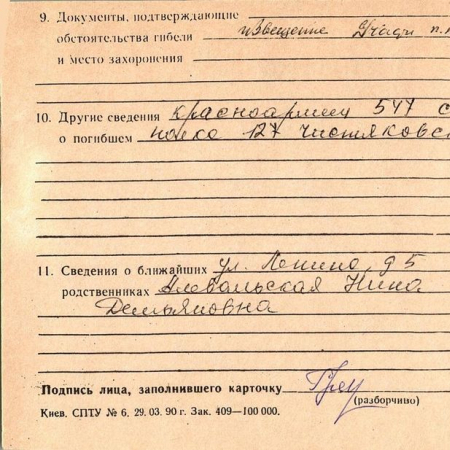 9. Документы, подтверждающие
обстоятельства гибели извещение
и место захоронения
10. Другие сведения красноармеец 547 с
о погибшем 127 Чистяковс
11. Сведения о ближайших ул. Ленина, д 5
родственниках Нина
Демьяновна
Подпись лица, заполнившего карточку
(разборчиво)
Киев. СПТУ № 6. 29. 03. 90 г. Зак. 409—100 000.